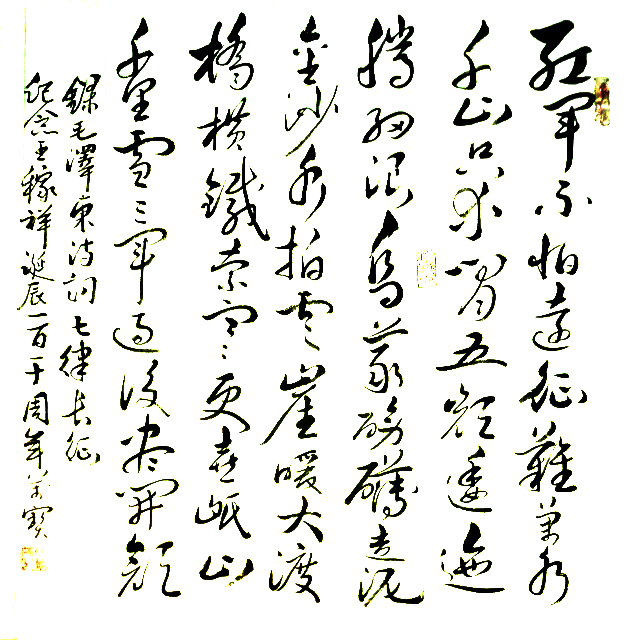 紅軍不怕遠征難萬水
千山只等閑五嶺逶迤
騰細浪烏蒙磅礴走泥
金沙水拍雲崖暖大渡
橋橫鐵索寒更喜岷山
千里雪三軍過後盡開顏
錄毛澤東詩詞七律長征
紀念王稼祥誕辰一百一十周年 寶